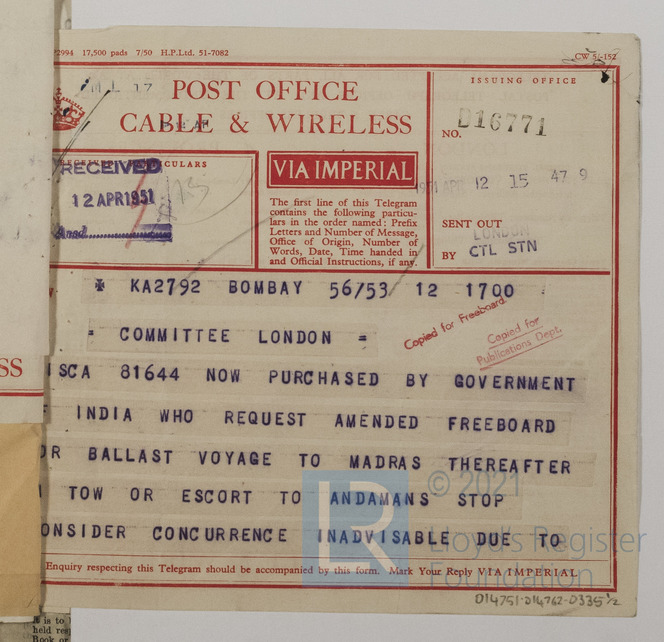 2994 17,500 pads 7/50 H.P.Ltd. 51-7082
CW 5/-152
POST OFFICE
CABLE & WIRELESS
VIA IMPERIAL
The first line of this Telegram
contains the following particu-
lars in the order named: Prefix
Letters and Number of Message,
Office of Origin, Number of
Words, Date, Time handed in
and Official Instructions, if any.
RECEIVED
CULARS
12 APR 1951
Ansd.
ISSUING OFFICE
NO. D16771
1951 APR 12 15 47 9
SENT OUT
LONDON
BY CTL STN
* KA2792 BOMBAY 56/53 12 1700
= COMMITTEE LONDON =
Copied for Freeboard
Copied for
Publications Dept.
ISCA 81644 NOW PURCHASED BY GOVERNMENT
F INDIA WHO REQUEST AMENDED FREEBOARD
OR BALLAST VOYAGE TO MADRAS THEREAFTER
TOW OR ESCORT TO ANDAMANS STOP
ONSIDER CONCURRENCE INADVISABLE DUE TO
Enquiry respecting this Telegram should be accompanied by this form. Mark Your Reply VIA IMPERIAL
SS
LR
© 2021
Lloyd's Register
Foundation
D14751-D14762-0335½
is to
held
Book or